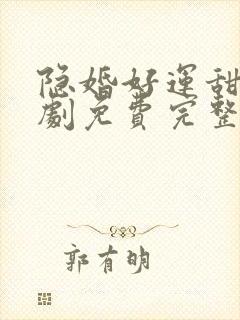 隐婚好运甜
劇免費完整
郭有明